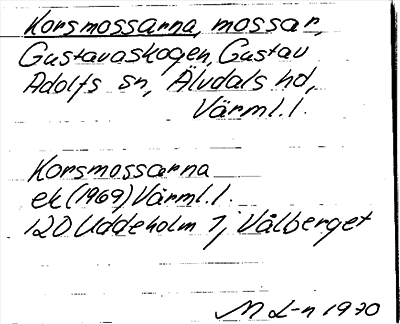 Korsmossarna, mossar,
Gustavaskogen, Gustav
Adolfs sn, Älvdals hd,
Värml. l.
Korsmossarna
ek (1969) Värml. l.
120 Uddeholm 1, Vålberget
M L-n 1970